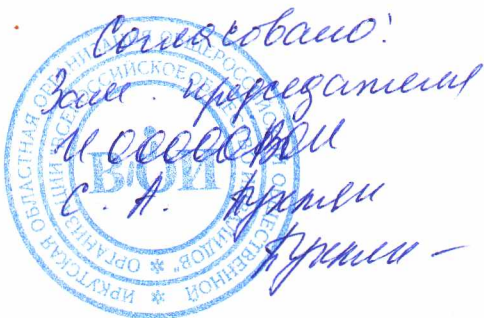 Согласовано:
Зам. председателя
ИООООО ВОИ
С. А.
ИРКУТСКАЯ ОБЛАСТНАЯ ОРГАНИЗАЦИЯ ОБЩЕРОССИЙСКОЙ ОБЩЕСТВЕННОЙ
ОРГАНИЗАЦИИ "ВСЕРОССИЙСКОЕ ОБЩЕСТВО ИНВАЛИДОВ"
ВОИ